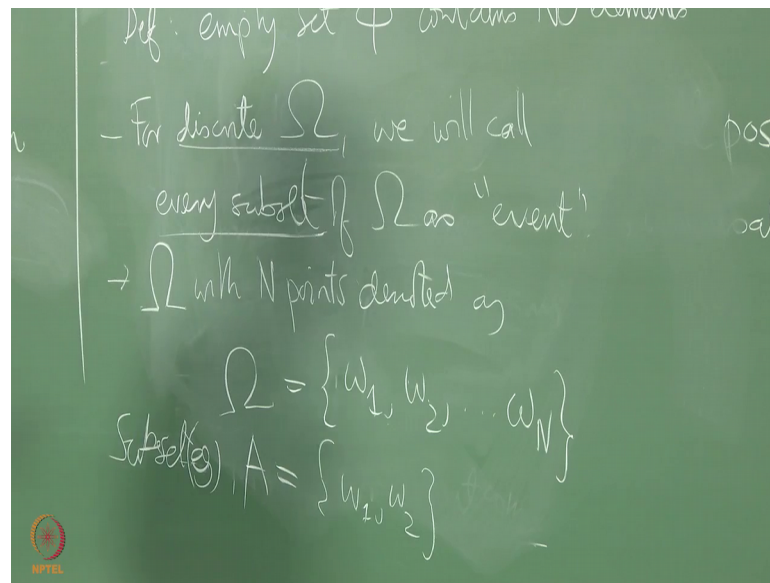 Def: empty set ϕ contains NO elements
- For discrete Ω, we will call
every subset of Ω as "event".
→ Ω with N points denoted as
Ω = {ω1, ω2, ... ωN}
Subset(eg). A = {ω1, ω2}
pos
NPTEL